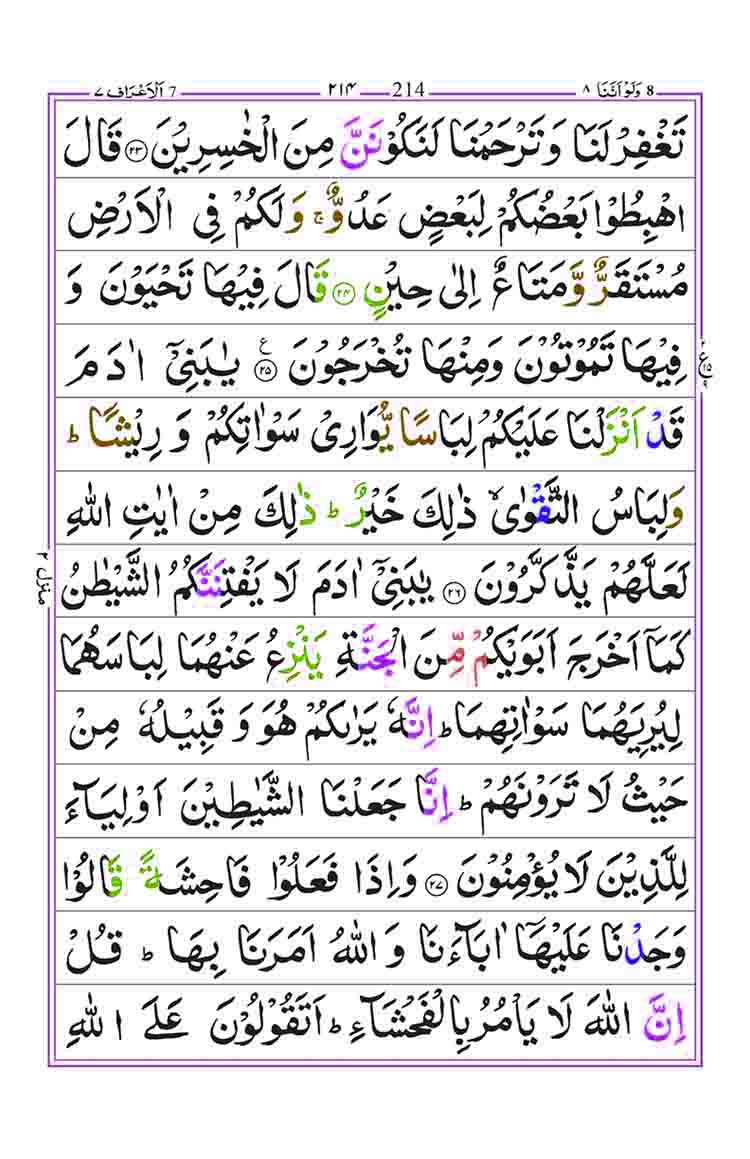 8 وَلَوْ اَنَّنَا ٨ 214 ٢١۴ 7 اَلْاَعْرَاف ٧
تَغْفِرْ لَنَا وَتَرْحَمْنَا لَنَكُوْنَنَّ مِنَ الْخٰسِرِيْنَ ۝٢٣ قَالَ
اهْبِطُوْا بَعْضُكُمْ لِبَعْضٍ عَدُوٌّ ۚ وَلَكُمْ فِى الْاَرْضِ
مُسْتَقَرٌّ وَّمَتَاعٌ اِلٰى حِيْنٍ ۝٢۴ قَالَ فِيْهَا تَحْيَوْنَ وَ
فِيْهَا تَمُوْتُوْنَ وَمِنْهَا تُخْرَجُوْنَ ۝٢۵ ع يٰبَنِىْٓ اٰدَمَ
قَدْ اَنْزَلْنَا عَلَيْكُمْ لِبَاسًا يُّوَارِىْ سَوْاٰتِكُمْ وَ رِيْشًا ؕ
وَلِبَاسُ التَّقْوٰى ۙ ذٰلِكَ خَيْرٌ ؕ ذٰلِكَ مِنْ اٰيٰتِ اللّٰهِ
لَعَلَّهُمْ يَذَّكَّرُوْنَ ۝٢٦ يٰبَنِىْٓ اٰدَمَ لَا يَفْتِنَنَّكُمُ الشَّيْطٰنُ
كَمَاۤ اَخْرَجَ اَبَوَيْكُمْ مِّنَ الْجَنَّةِ يَنْزِعُ عَنْهُمَا لِبَاسَهُمَا
لِيُرِيَهُمَا سَوْاٰتِهِمَا ؕ اِنَّهٗ يَرٰىكُمْ هُوَ وَ قَبِيْلُهٗ مِنْ
حَيْثُ لَا تَرَوْنَهُمْ ؕ اِنَّا جَعَلْنَا الشَّيٰطِيْنَ اَوْلِيَآءَ
لِلَّذِيْنَ لَا يُؤْمِنُوْنَ ۝٢٧ وَاِذَا فَعَلُوْا فَاحِشَةً قَالُوْا
وَجَدْنَا عَلَيْهَاۤ اٰبَآءَنَا وَ اللّٰهُ اَمَرَنَا بِهَا ؕ قُلْ
اِنَّ اللّٰهَ لَا يَاْمُرُ بِالْفَحْشَآءِ ؕ اَتَقُوْلُوْنَ عَلَى اللّٰهِ
منزل ٢